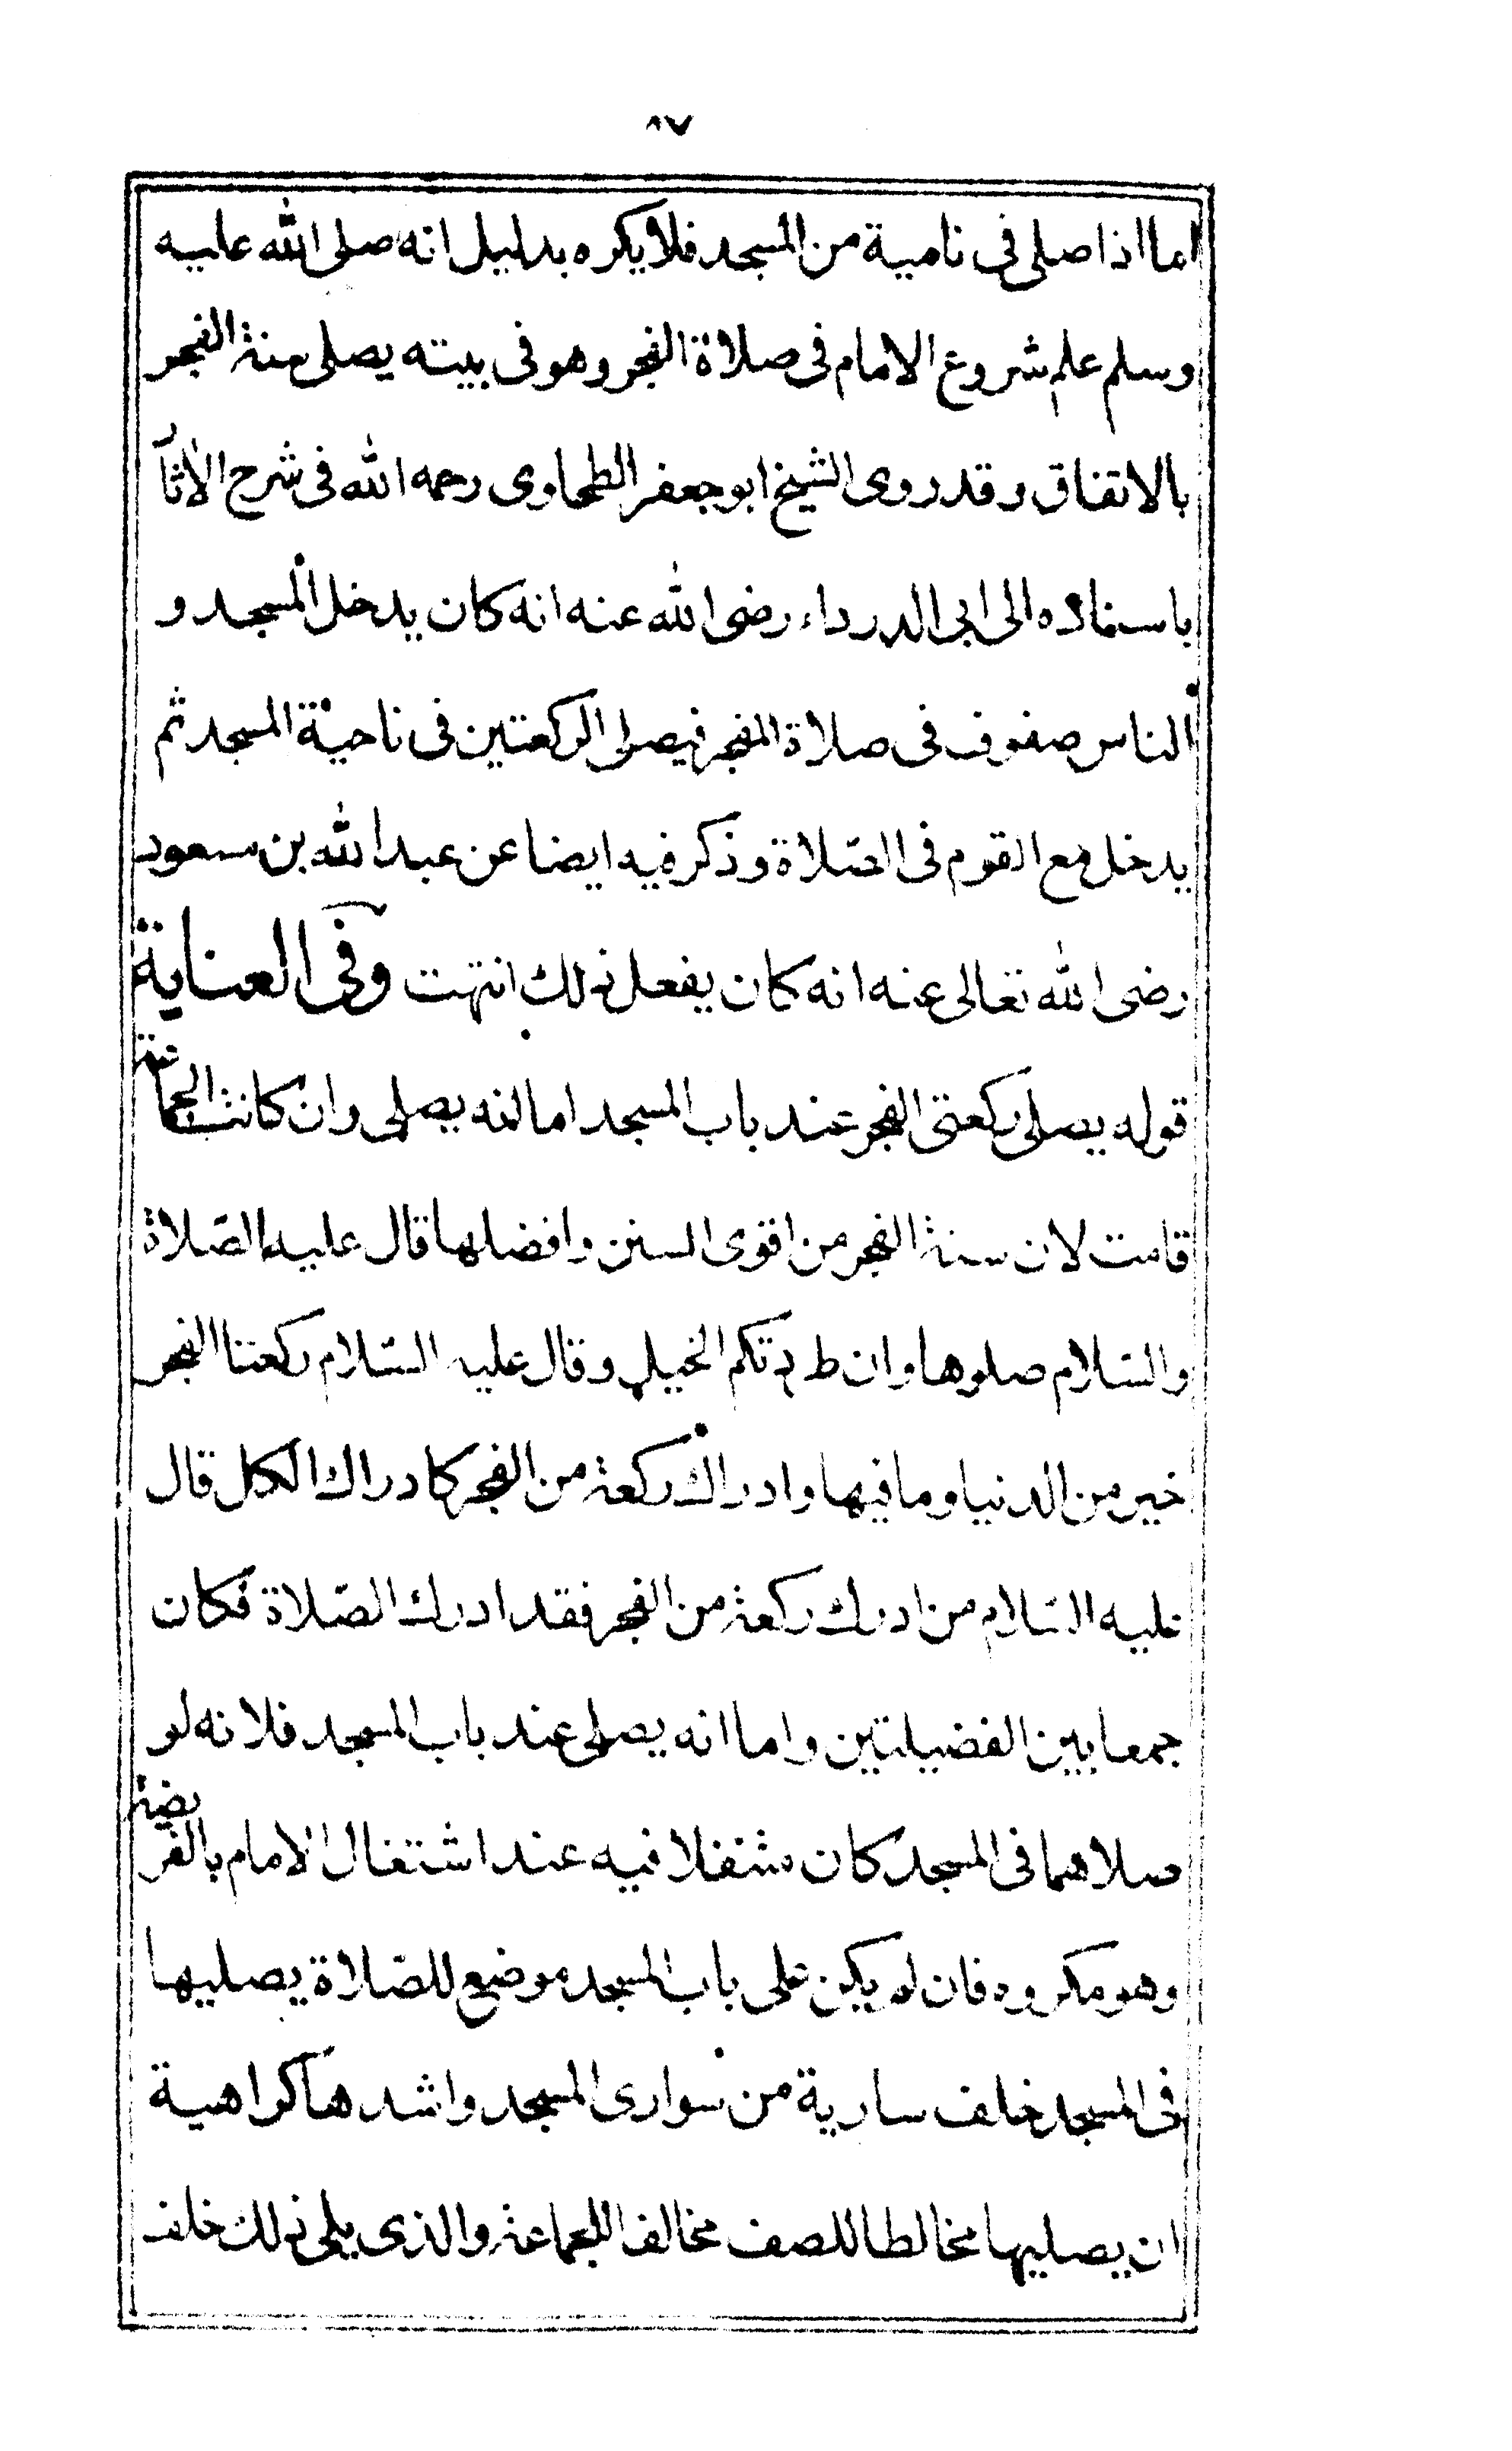 ٨٧
اما اذا صلى فى نامية من المسجد فلا يكره بدليل انه صلى الله عليه
وسلم علم شروع الامام فى صلاة الفجر وهو فى بيته يصلى سنة الفجر
بالاتفاق وقد روى الشيخ ابو جعفر الطحاوى رحمه الله فى شرح الاثار
باسناده الى ابى الدرداء رضى الله عنه انه كان يدخل المسجد و
الناس صفوف فى صلاة الفجر فيصلى الركعتين فى ناحية المسجد ثم
يدخل مع القوم فى الصّلاة وذكر فيه ايضا عن عبد الله بن مسعود
رضى الله تعالى عنه انه كان يفعل ذلك انتهت وفى العناية
قوله يصلى ركعتى الفجر عند باب المسجد اما انه يصلى وان كانت الجماعة
قامت لان سنة الفجر من اقوى السنن وافضلها قال عليه الصّلاة
والسّلام صلوها وان طردتكم الخيل وقال عليه السّلام ركعتا الفجر
خير من الدنيا وما فيها وادراك ركعة من الفجر كادراك الكل قال
عليه السّلام من ادرك ركعة من الفجر فقد ادرك الصّلاة فكان
جمعا بين الفضيلتين واما انه يصلى عند باب المسجد فلانه لو
صلاهما فى المسجد كان متنفلا فيه عند اشتغال الامام بالفريضة
وهو مكروه فان لم يكن على باب المسجد موضع للصّلاة يصليها
فى المسجد خلف سارية من سوارى المسجد واشدها كراهية
ان يصليها مخالطا للصف مخالفا للجماعة والذى يلى ذلك خلف